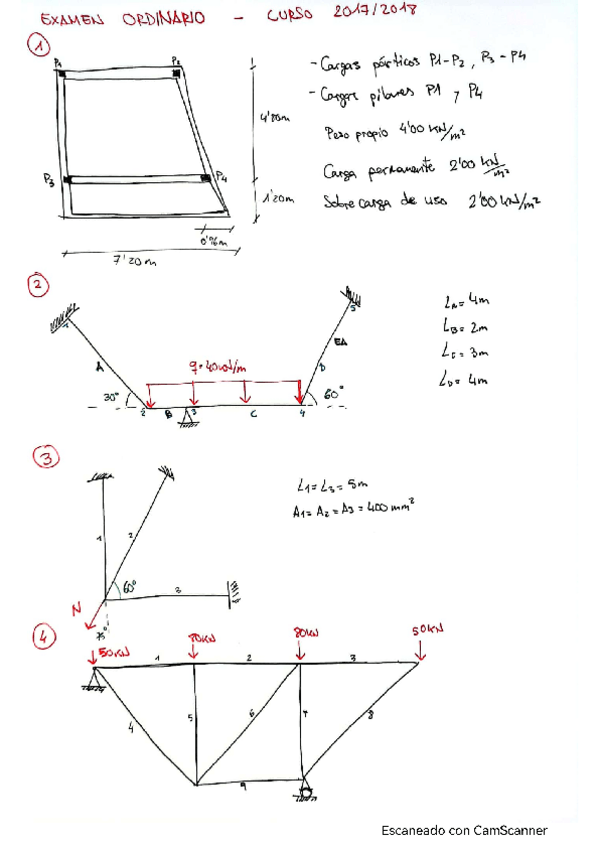 EXAMEN ORDINARIO - CURSO 2017/2018
1
P1
P2
P3
P4
4'80m
1'20m
0'96m
7'20m
- Cargas pórticos P1-P2, P3-P4
- Cargas pilares P1 y P4
Peso propio 4'00 kN/m²
Carga permanente 2'00 kN/m²
Sobrecarga de uso 2'00 kN/m²
2
1
A
30°
2
B
3
C
4
60°
D
EA
5
q=40kN/m
LA= 4m
LB= 2m
LC= 3m
LD= 4m
3
1
2
3
60°
N
L1= L3= 5m
A1= A2= A3= 400 mm²
4
50KN
80KN
50KN
1
2
3
4
5
6
7
8
9
Escaneado con CamScanner